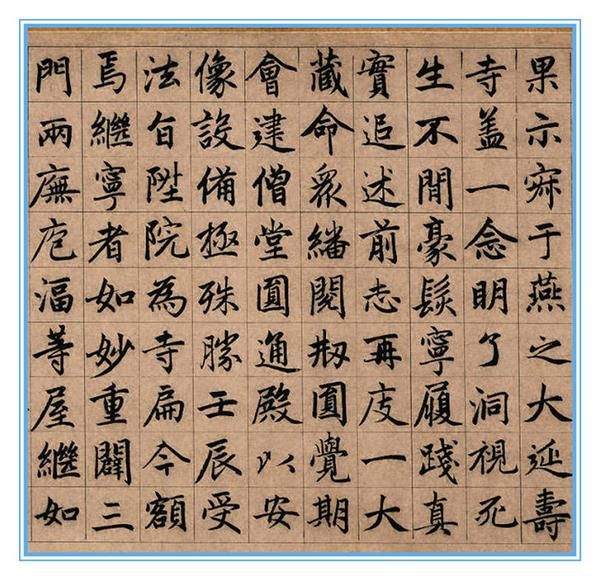 果示寂于燕之大延壽
寺盖一念明了洞視死
生不閒豪髮寧履踐真
實追述前志再度一大
藏命眾繙閱刱圓覺期
會建僧堂圓通殿以安
像設備極殊勝壬辰受
法旨陞院為寺扁今額
焉繼寧者如妙重闢三
門兩廡庖湢等屋繼如